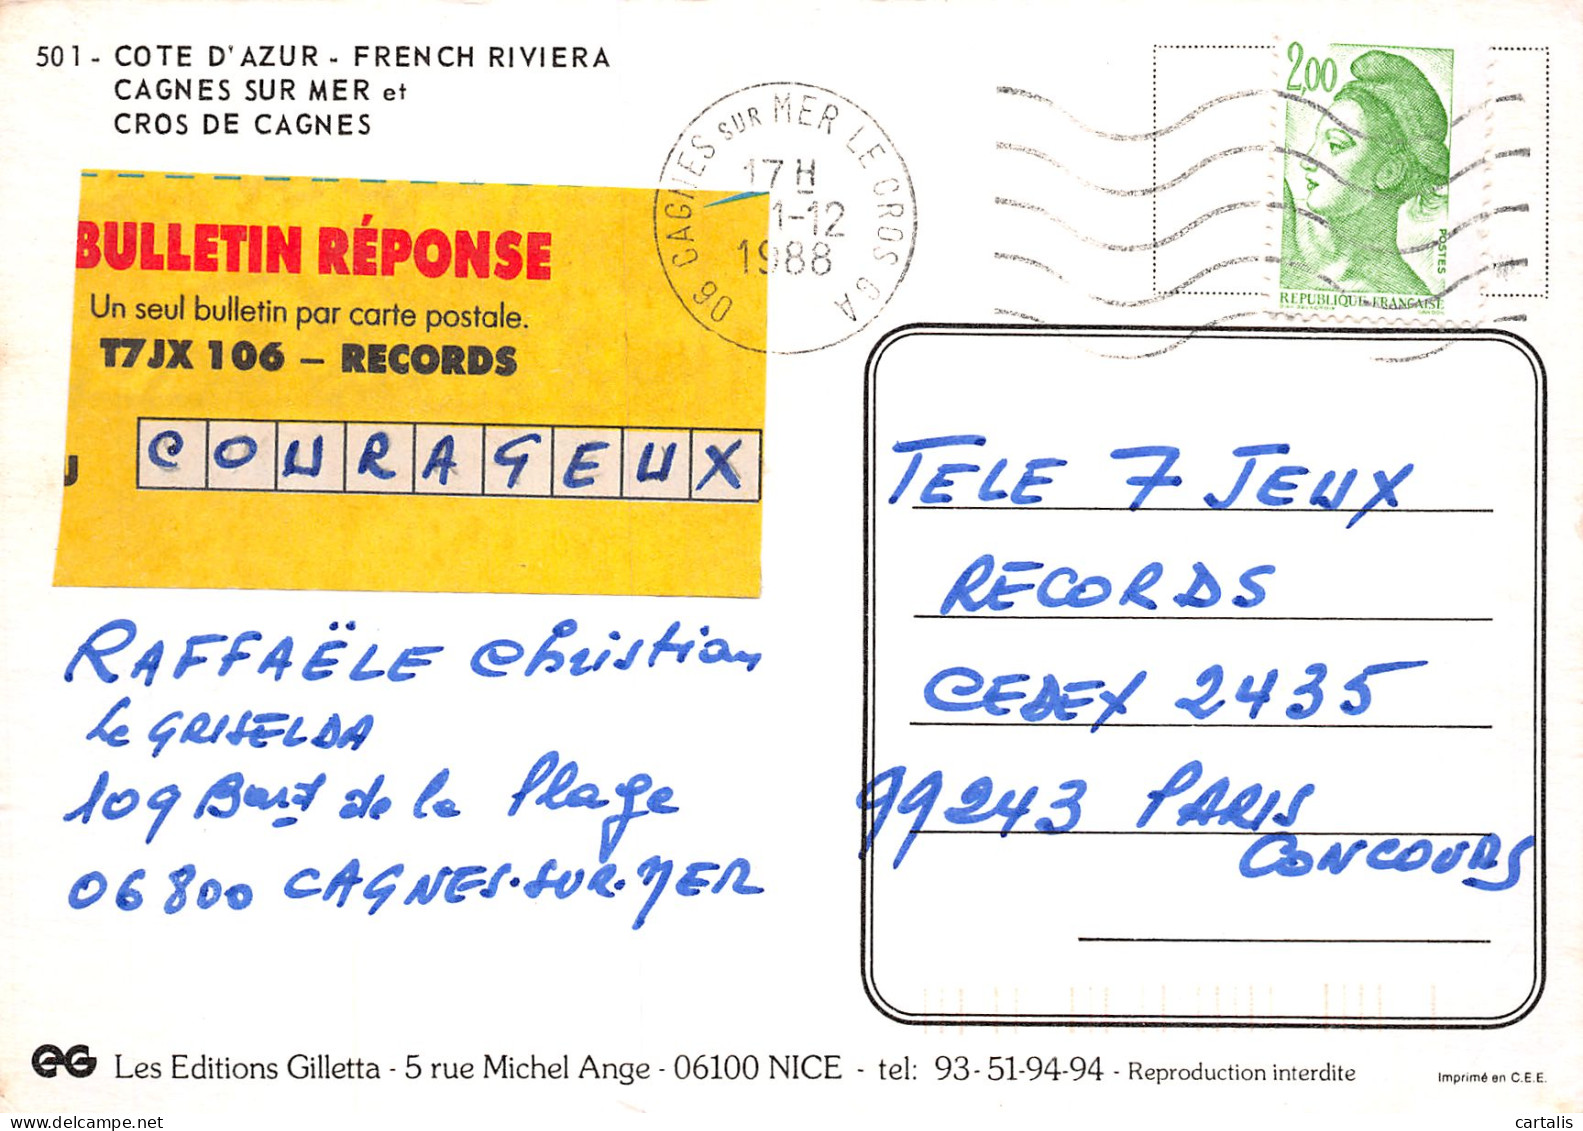 501 - COTE D'AZUR - FRENCH RIVIERA
CAGNES SUR MER et
CROS DE CAGNES
BULLETIN RÉPONSE
Un seul bulletin par carte postale.
T7JX 106 – RECORDS
COURAGEUX
RAFFAËLE Christian
Le GRISELDA
109 de la Plage
06800 CAGNES.SUR.MER
06 CAGNES SUR MER LE CROS CA
17 H
1-12
1988
2,00
POSTES
REPUBLIQUE FRANÇAISE
TELE 7 JEUX
RECORDS
CEDEX 2435
99243 PARIS
CONCOURS
Les Editions Gilletta - 5 rue Michel Ange - 06100 NICE - tel: 93-51-94-94 - Reproduction interdite
Imprimé en C.E.E.
cartalis